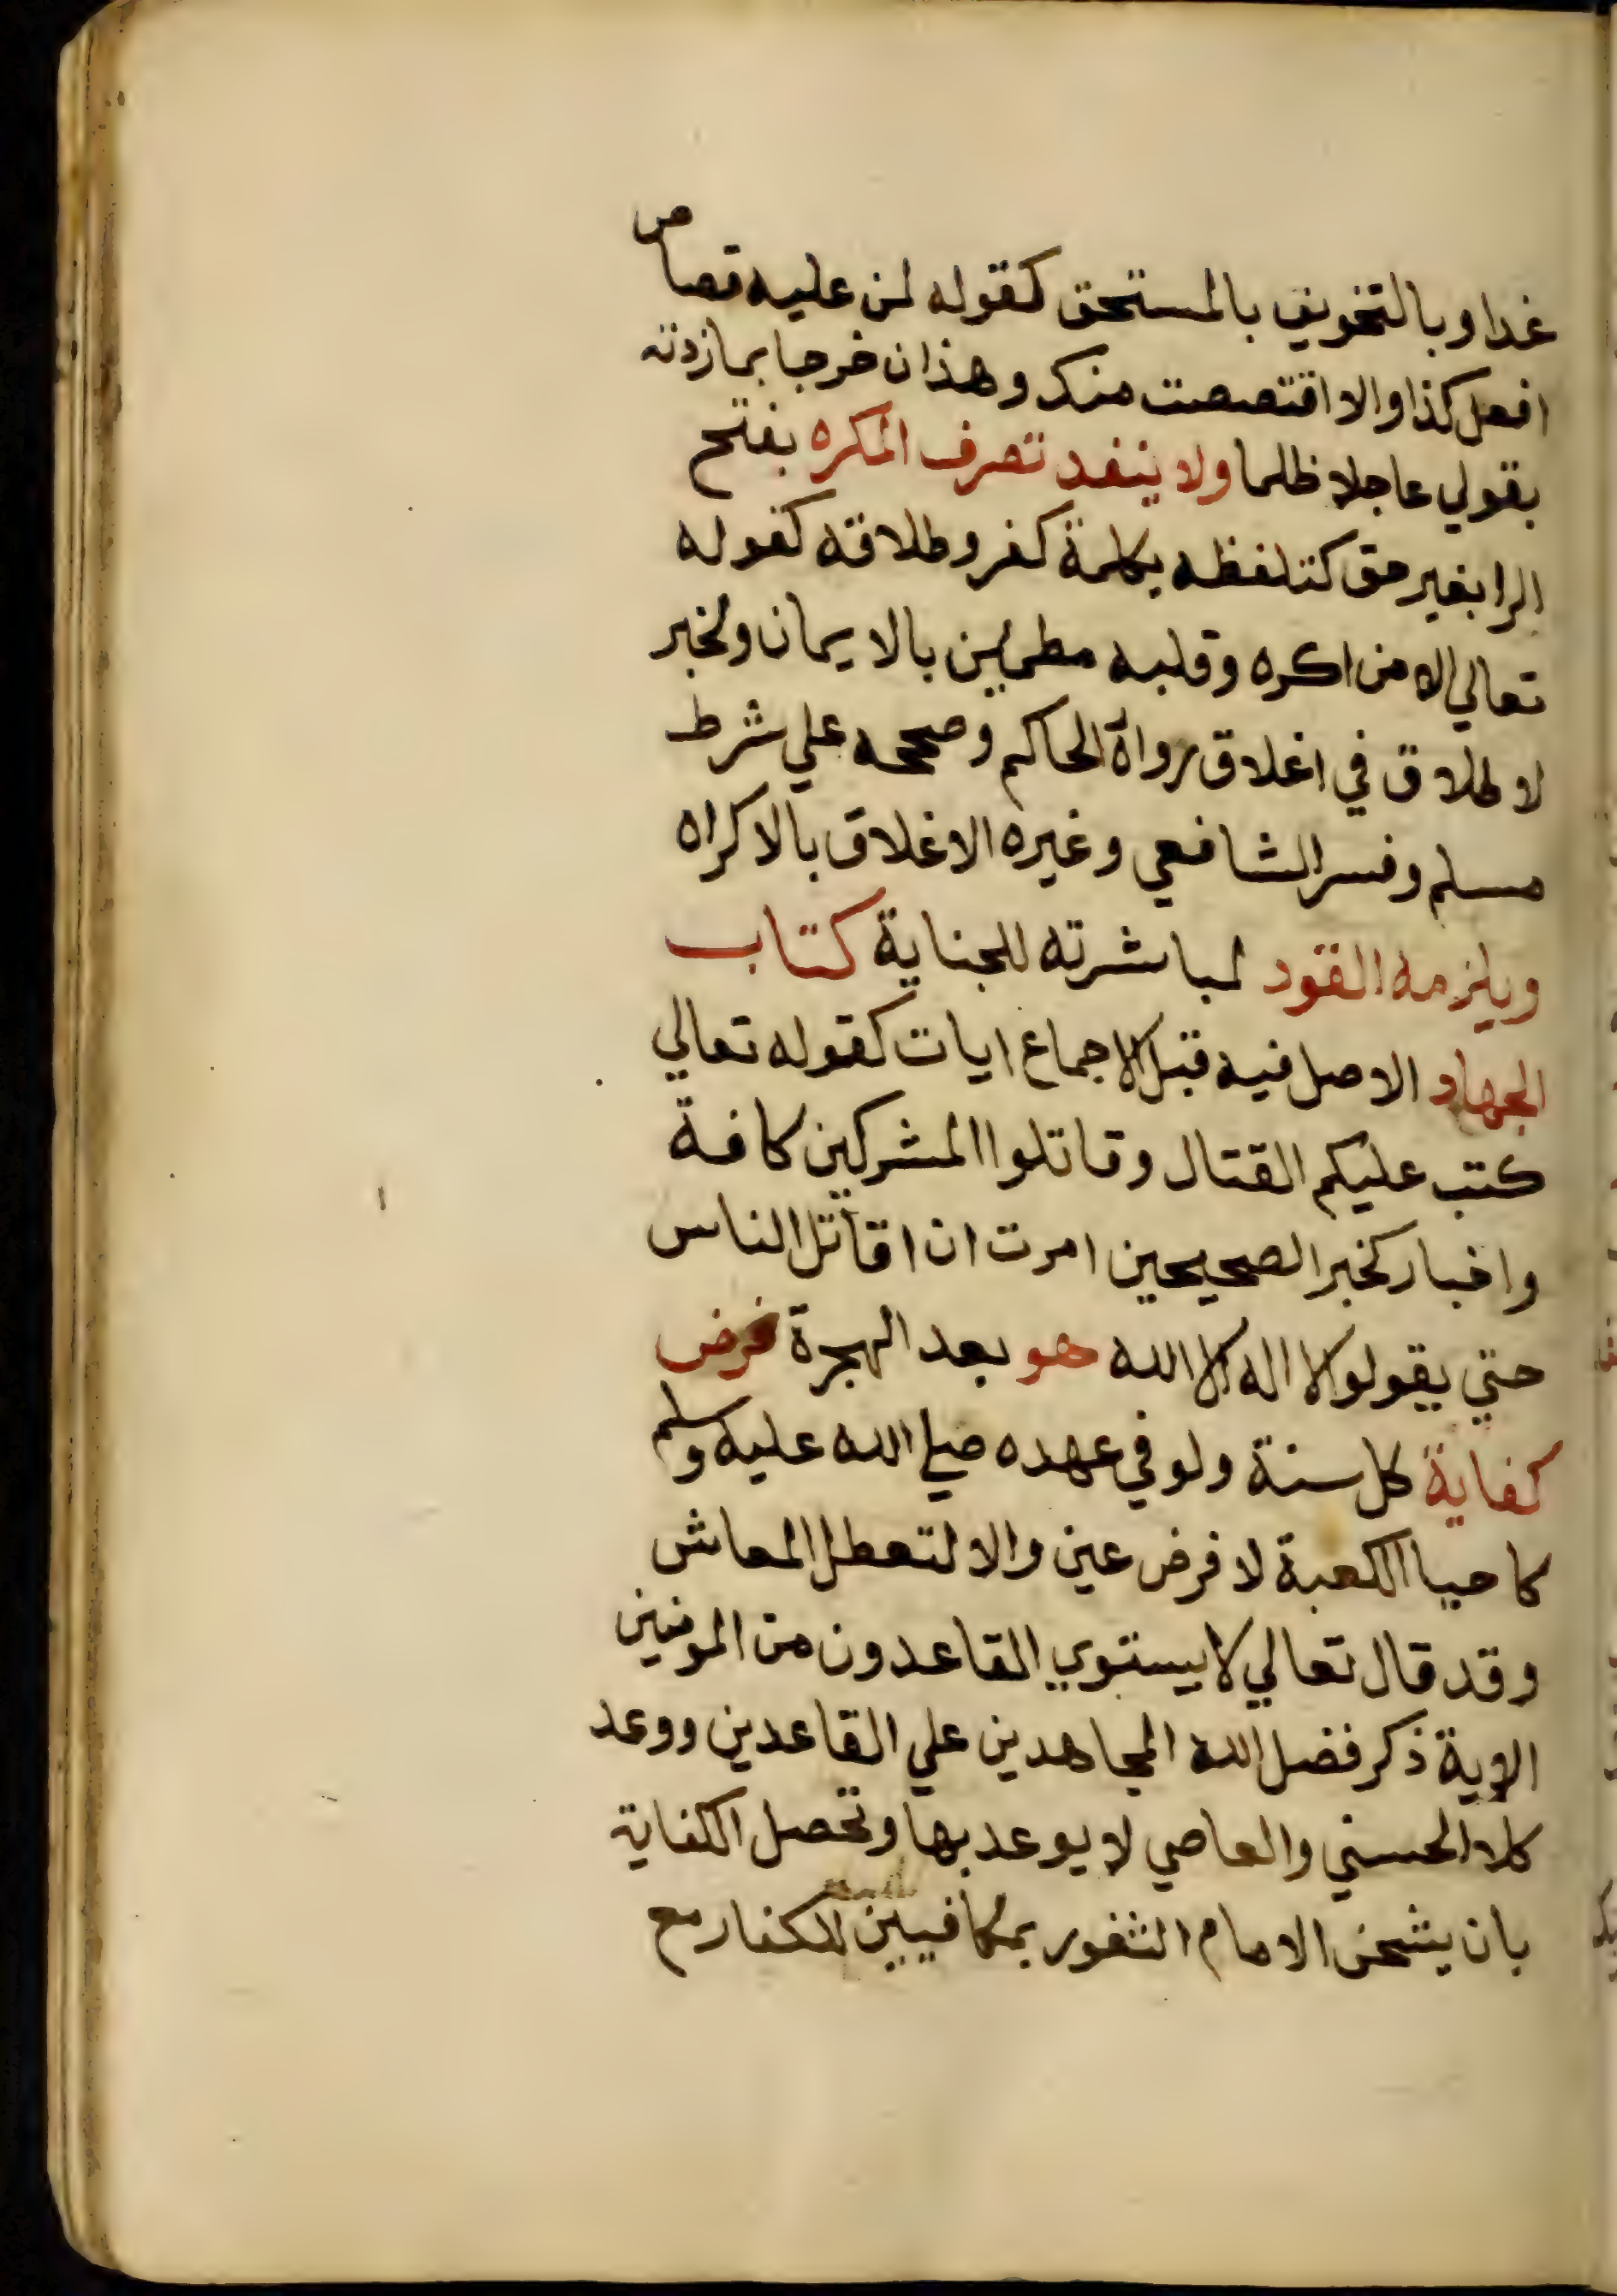 غدا وبالتخويف بالمستحق كقوله لمن عليه قصاص
افعل كذا والا اقتصصت منك وهذان خرجا بما زدته
بقولي عاجلا ظلما ولا ينفد تصرف المكره بفتح
الرا بغير حق كتلفظه بكلمة كفر وطلاقه كقوله
تعالي الا من اكره وقلبه مطمين بالايمان ولخبر
لا طلاق في اغلاق رواه الحاكم وصححه علي شرط
مسلم وفسر الشافعي وغيره الاغلاق بالاكراه
ويلزمه القود لمباشرته للجناية كتاب
الجهاد الاصل فيه قبل الاجماع ايات كقوله تعالي
كتب عليكم القتال وقاتلوا المشركين كافة
واخبار كخبر الصحيحين امرت ان اقاتل الناس
حتي يقولوا لا اله الا الله هو بعد الهجرة فرض
كفاية كل سنة ولو في عهده صلي الله عليه وسلم
كاحيا الكعبة لا فرض عين والا لتعطل المعاش
وقد قال تعالي لا يستوي القاعدون من المومنين
الاية ذكر فضل الله المجاهدين علي القاعدين ووعد
كلا الحسني والعاصي لا يوعد بها وتحصل الكفاية
بان يشحن الامام الثغور بمكافيين للكفار مع